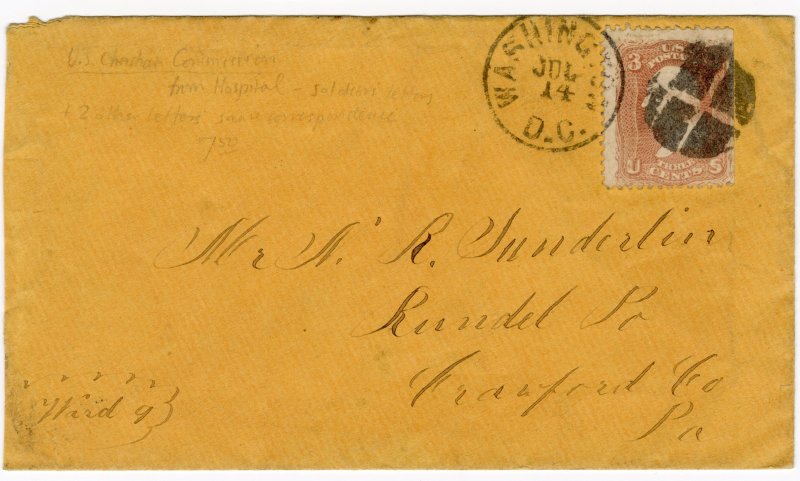 U.S. Christian Commission
from Hospital - soldiers' letters
+ 2 other letters same correspondence
7.50
WASHINGTON
JUL
14
D.C.
3
U.S.
POSTAGE
THREE
U CENTS S
Mr N. R. Sunderlin
Rundel Po
Craxford Co
Pa
Ward 9